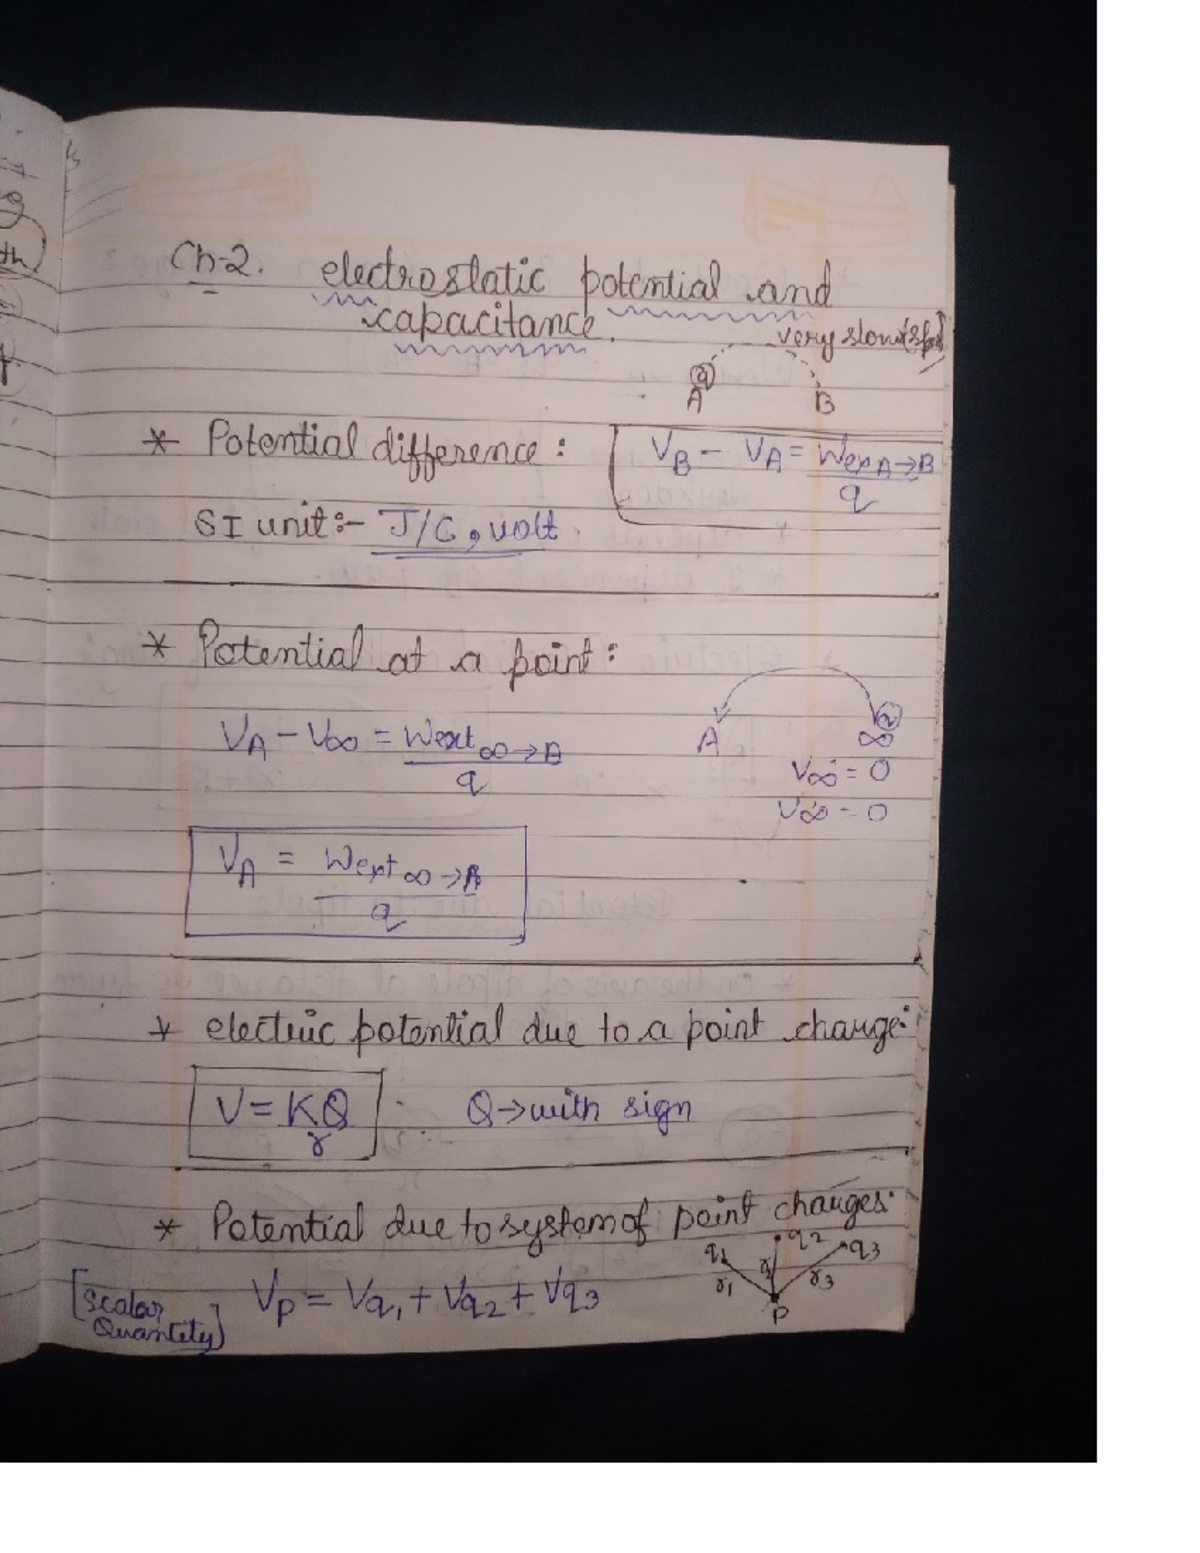 Ch-2. electrostatic potential and
capacitance.
very slow
q
A B
* Potential difference :
VB - VA = Wext A→B / q
SI unit :- J/C, volt.
* Potential at a point :
VA - V∞ = Wext ∞→A / q
A ∞
V∞ = 0
V∞ = 0
VA = Wext ∞→A / q
* electric potential due to a point charge:
V = KQ / r
Q→with sign
* Potential due to system of point charges:
q1 q2 q3
r1 r3
P
[Scalar
Quantity]
Vp = Vq1 + Vq2 + Vq3